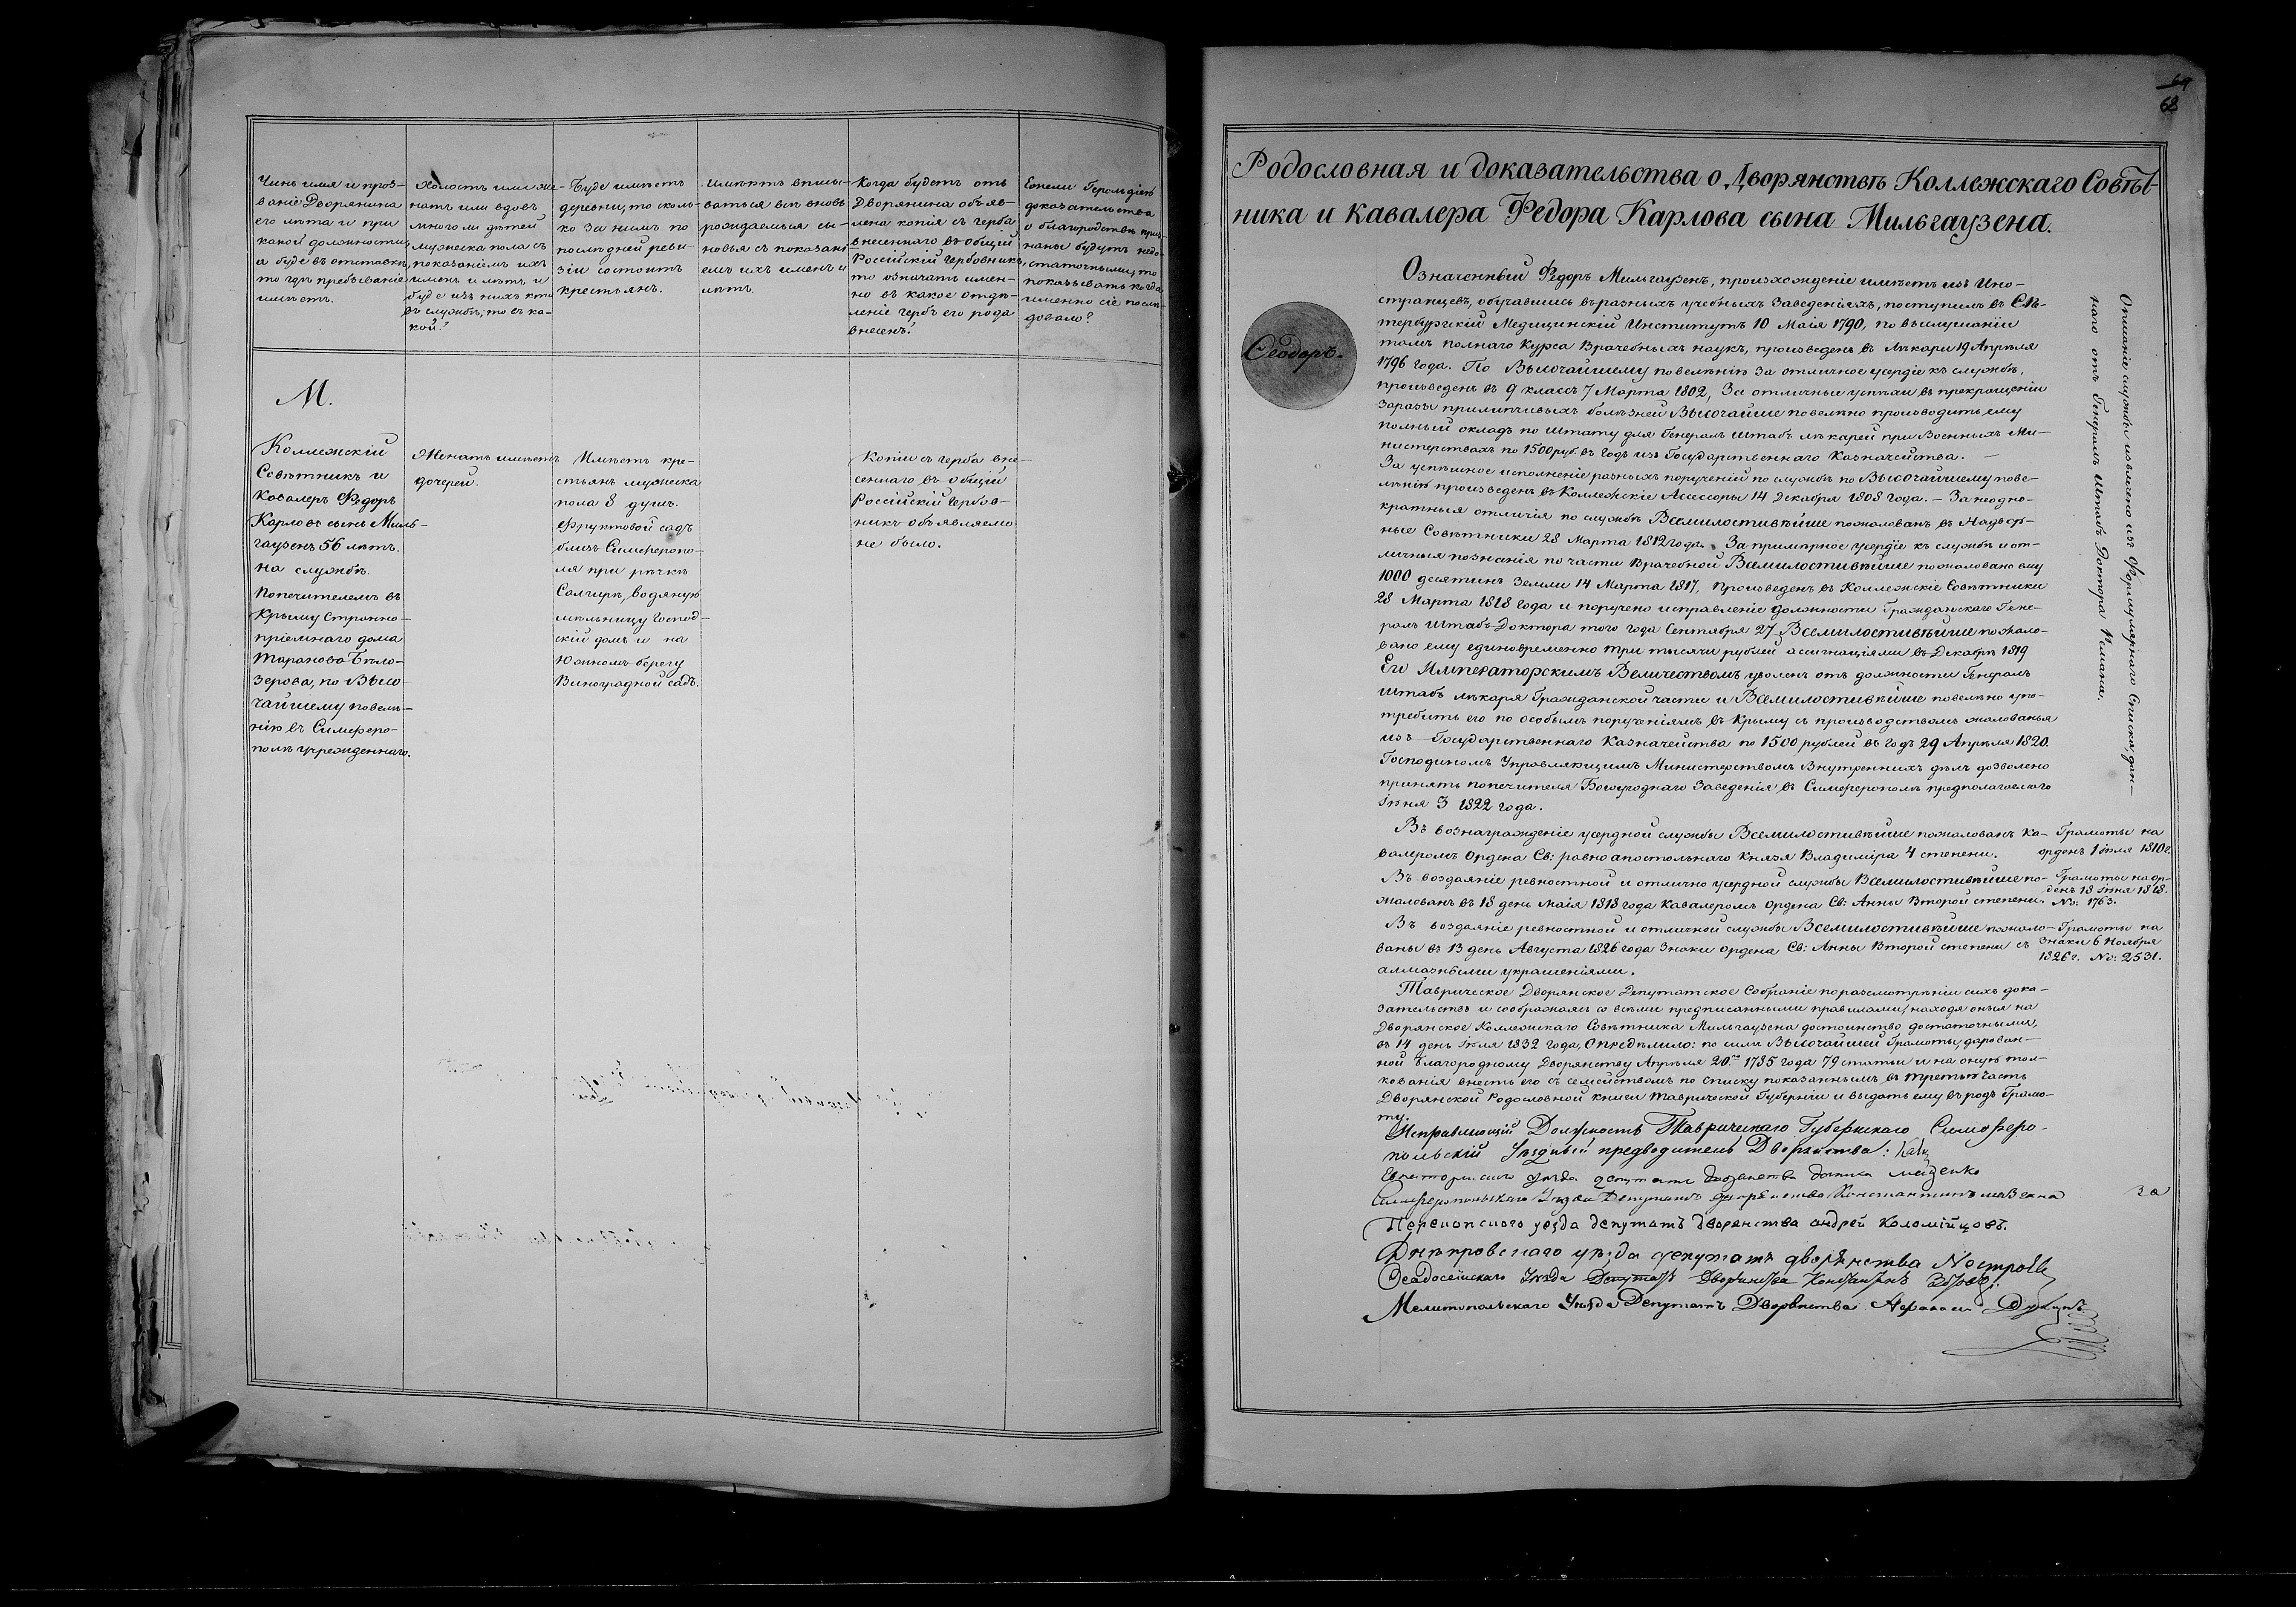 Чинъ имя и проз-
ваніе Дворянина
его лѣта и при
какой должности,
а буде въ отставкѣ
то гдѣ пребываніе
имѣетъ.
Холостъ или же-
натъ или вдовъ
много ли дѣтей
мужеска пола съ
показаніемъ ихъ
именъ и лѣтъ, и
буде изъ нихъ кто
въ службѣ, то въ ка-
кой?
Буде имѣетъ
деревни, то сколь-
ко за нимъ по
послѣдней реви-
зіи состоитъ
крестьянъ.
Имѣютъ вписы-
ваться всѣ вновь
рождаемыя сы-
новья съ показані-
емъ ихъ именъ и
лѣтъ.
Когда будетъ отъ
Дворянина объяв-
лена копія съ герба
внесеннаго въ общій
Россійскій Гербовникъ,
то означать имен-
но въ какое отдѣ-
леніе гербъ его рода
внесенъ?
Еслели Герольдіею
доказательства
о благородствѣ приз-
наны будутъ недо-
статочными, то
показывать когда
именно сіе послѣ-
довало?
М.
Коллежскій
Совѣтникъ и
Кавалеръ Федоръ
Карловъ сынъ Миль-
гаузенъ 56 лѣтъ.
на службѣ.
Попечителемъ въ
Крыму Странно-
пріемнаго дома
Таранова Бѣло-
зерова, по Высо-
чайшему повелѣ-
нію въ Симферо-
полѣ учрежденнаго.
Женатъ имѣетъ
дочерей.
Имѣетъ кре-
стьянъ мужеска
пола 8 душъ.
Фруктовой садъ
близъ Симферопо-
ля при рѣчкѣ
Салгирѣ, водяную
мѣльницу Господ-
скій домъ и на
Южномъ берегу
Виноградной садъ.
Копіи съ герба вне-
сеннаго въ общій
Россійскій Гербов-
никъ объявляемо
не было.
64
68
Родословная и доказательства о Дворянствѣ Коллежскаго Совѣт-
ника и кавалера Федора Карлова сына Мильгаузена.
Ѳеодоръ.
Означенный Федоръ Мильгаузенъ, происхожденіе имѣетъ изъ Ино-
странцевъ, обучавшись въ разныхъ учебныхъ Заведеніяхъ, поступилъ въ С.Пе-
тербургскій Медицинскій Институтъ 10 Маія 1790, по выслушаніи
тамъ полнаго Курса Врачебныхъ наукъ, произведенъ въ Лѣкари 19 Апрѣля
1796 года. По Высочайшему повелѣнію за отличное усердіе къ службѣ,
произведенъ въ 9 классъ 7 Марта 1802, За отличные успѣхи въ прекращеніи
Заразы прилипчивыхъ болѣзней Высочайше повелѣно производить ему
полный окладъ по Штату для Генералъ Штабъ лѣкарей при Военныхъ Ми-
нистерствахъ по 1500 руб. въ годъ изъ Государственнаго Казначейства. —
За успѣшное исполненіе разныхъ порученій по службѣ по Высочайшему пове-
лѣнію произведенъ въ Коллежскіе Асессоры 14 Декабря 1808 года. — За неодно-
кратныя отличія по службѣ Всемилостивѣйше пожалованъ въ Надвор-
ные Совѣтники 28 Марта 1812 года. За примѣрное усердіе къ службѣ и от-
личныя познанія по части Врачебной Всемилостивѣйше пожаловано ему
1000 десятинъ Земли 14 Марта 1817, Произведенъ въ Коллежскіе Совѣтники
28 Марта 1818 года и поручено исправленіе должности Гражданскаго Гене-
ралъ Штабъ-Доктора того года Сентября 27 Всемилостивѣйше пожало-
вано ему единовременно три тысячи рублей ассигнаціями въ Декабрѣ 1819
Его Императорскимъ Величествомъ уволенъ отъ должности Генералъ
Штабъ лѣкаря Гражданской части и Всемилостивѣйше повелѣно упо-
требить его по особымъ порученіямъ въ Крыму съ производствомъ жалованья
изъ Государственнаго Казначейства по 1500 рублей въ годъ 29 Апрѣля 1820.
Господиномъ Управляющимъ Министерствомъ Внутреннихъ дѣлъ дозволено
принять попечителя Богоугоднаго Заведенія въ Симферополѣ предполагаемаго
Іюня 3 1822 года.
Описаніе службы извлечено изъ Формулярнаго Списка, дан-
наго отъ Генералъ Штабъ Доктора Немана.
Въ вознагражденіе усердной службы Всемилостивѣйше пожалованъ Ка-
валеромъ Ордена Св: равноапостольнаго Князя Владиміра 4 степени.
Грамоты на
орденъ 1 Іюля 1810 г.
Въ воздаяніе ревностной и отлично усердной службы Всемилостивѣйше по-
жалованъ въ 18 день Маія 1818 года Кавалеромъ Ордена Св: Анны Второй степени.
Грамоты на ор-
денъ 18 Іюня 1818.
No: 1763.
Въ воздаяніе ревностной и отличной службы Всемилостивѣйше пожало-
ваны въ 13 день Августа 1826 года Знаки ордена Св: Анны Второй степени съ
алмазными украшеніями.
Грамоты на
Знаки 6 Ноября
1826 г. No: 2531.
Таврическое Дворянское Депутатское Собраніе по разсмотрѣніи сихъ дока-
зательствъ и соображаясь со всѣми предписанными правилами, находя оныя на
Дворянское Коллежскаго Совѣтника Мильгаузена достоинство достаточными,
въ 14 день Іюля 1832 года, Опредѣлило: по силѣ Высочайшей Грамоты, дарован-
ной благородному Дворянству Апрѣля 20го 1785 года 79 статьи и на оную тол-
кованія внесть его съ семействомъ по списку показаннымъ въ третью часть
Дворянской Родословной книги Таврической Губерніи и выдать ему въ родъ Грамо-
ту.
Исправляющій Должность Таврическаго Губернскаго Симферо-
польскій Уѣздный предводитель Дворянства:
Евпаторійскаго уѣзда депутатъ дворянства
Симферопольскаго Уѣзда Депутатъ дворянства Константинъ
Перекопского уезда депутатъ дворянства андрей Коломійцовъ.
Днѣпровскаго уѣзда депутатъ дворянства
Ѳеодосійскаго Уѣзда Депутатъ Дворянства Константинъ
Мелитопольскаго Уѣзда Депутатъ Дворянства